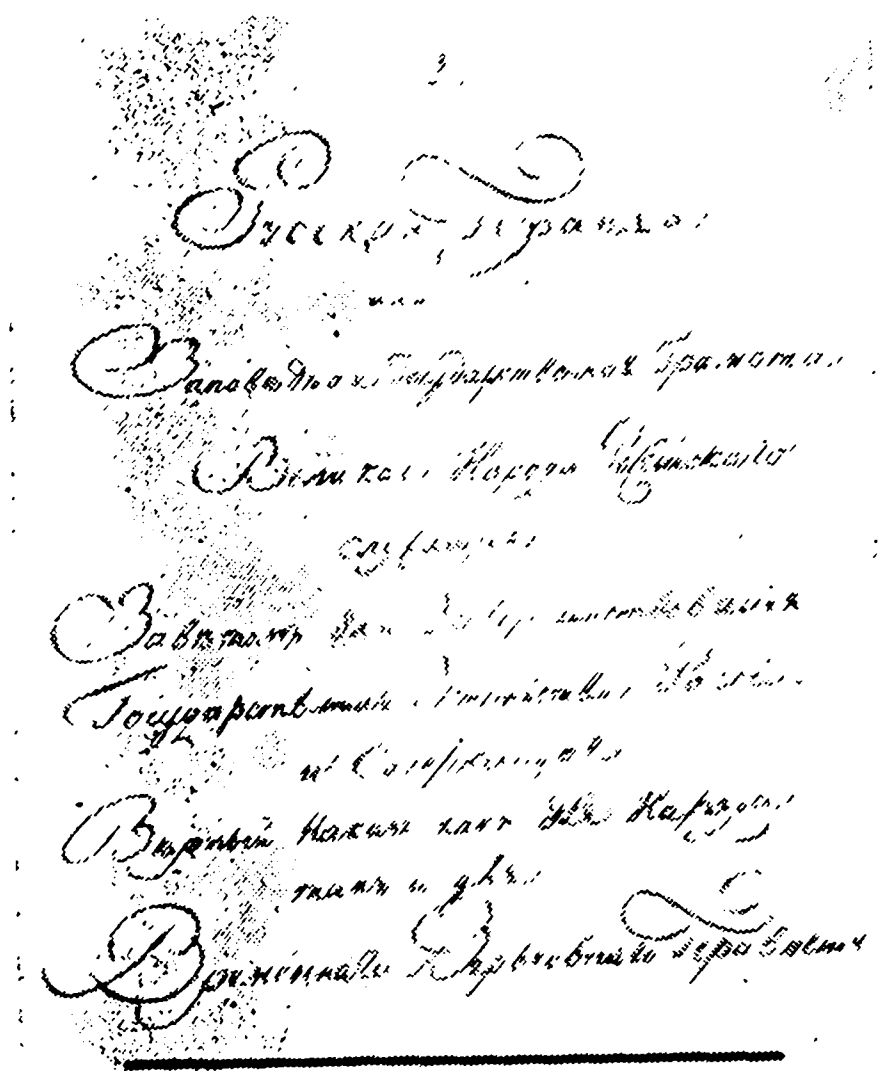 3.
Русская Правда
или
Заповедная Государственная Грамота
Великаго Народа Россійскаго
служащая
Завѣтомъ для Усовершенствованія
Государственнаго Устройства Россіи
и Содержащая
Вѣрный Наказъ какъ для Народа
такъ и для
Временнаго Верховнаго Правленія